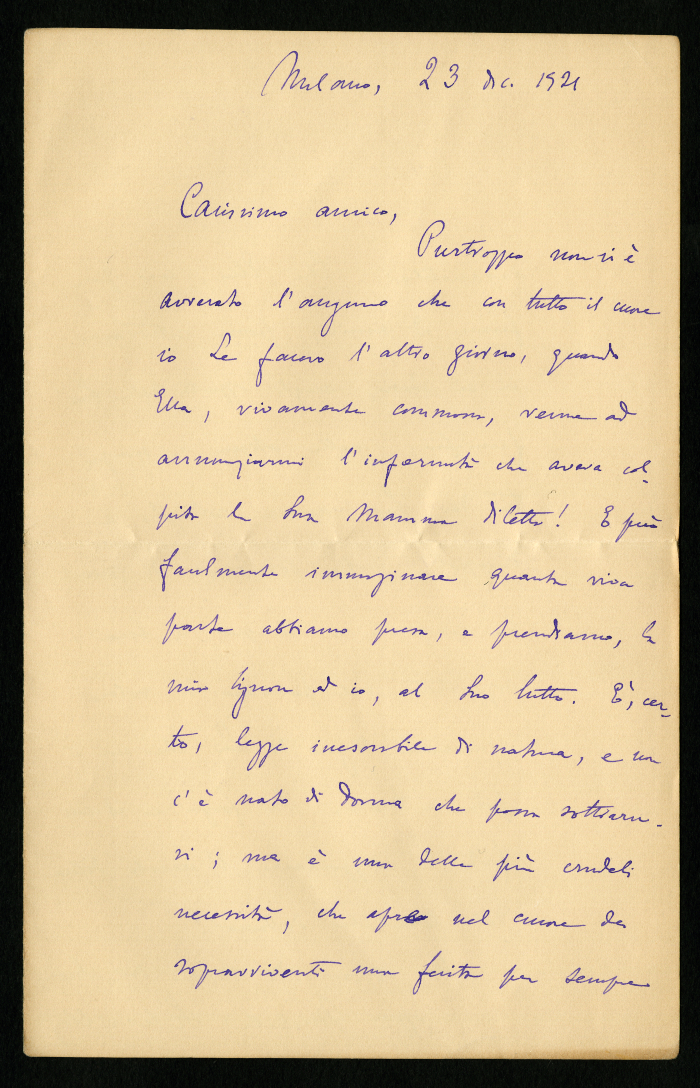 Milano, 23 dic. 1921
Carissimo amico,
Purtroppo non si è
avverato l'augurio che con tutto il cuore
io Le facevo l'altro giorno, quando
Ella, vivamente commosso, venne ad
annunziarmi l'infermità che aveva col-
pito la Sua Mamma diletta! E può
facilmente immaginare quanta viva
parte abbiamo presa, e prendiamo, la
mia Signora ed io, al Suo lutto. È, cer-
to, legge inesorabile di natura, e non
c'è nato di donna che possa sottrarvi-
si; ma è una delle più crudeli
necessità, che apre nel cuore dei
sopravviventi una ferita per sempre